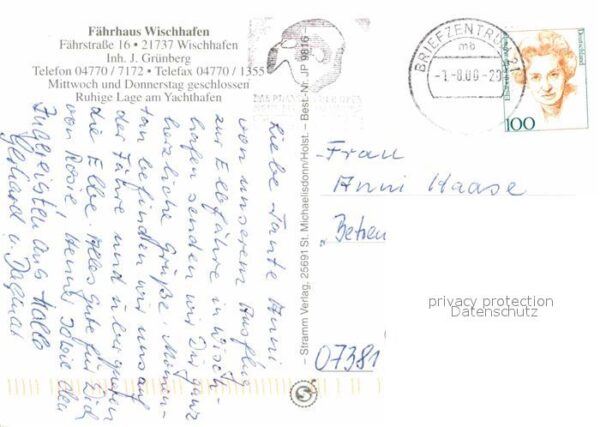 Fährhaus Wischhafen
Fährstraße 16 • 21737 Wischhafen
Inh. J. Grünberg
Telefon 04770 / 7172 • Telefax 04770 / 1355
Mittwoch und Donnerstag geschlossen
Ruhige Lage am Yachthafen
Liebe Tante Anni
von unserem Ausflug
zur Elbfähre in Wisch-
hafen senden wir Dir ganz
herzliche Grüße. Momen-
tan befinden wir uns auf
der Fähre und überqueren
die Elbe. Alles Gute für Dich
von Rosie Henni sowie den
aus Halle
Gerhard u. Dagmar
– Stramm Verlag, 25691 St. Michaelisdonn/Holst. – Best.-Nr. JP 9816 –
BRIEFZENTRUM
mb
Deutschland
100
Frau
Anni Haase
"Betreu
07381
privacy protection
Datenschutz
S